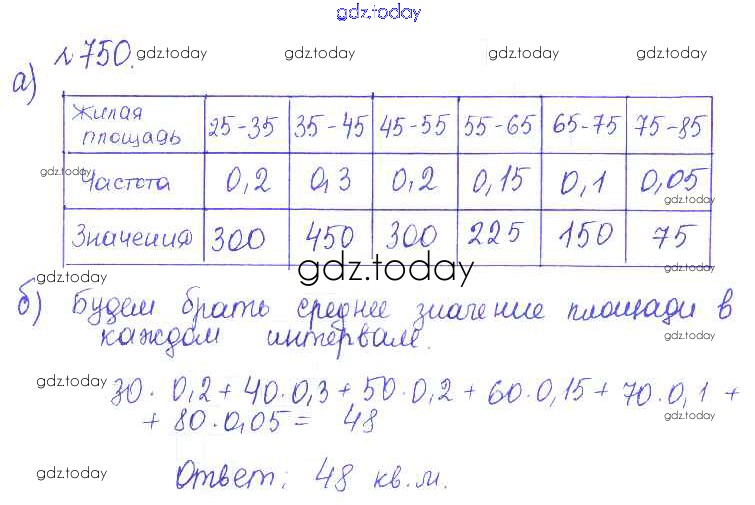 gdz.today
№750. gdz.today gdz.today gdz.today gdz.today
а)
Жилая площадь 25-35 35-45 45-55 55-65 65-75 75-85
gdz.today
Частота 0,2 0,3 0,2 0,15 0,1 0,05
gdz.today
Значения 300 450 300 225 150 75
gdz.today gdz.today gdz.today
б) Будем брать среднее значение площади в
каждом интервале.
gdz.today gdz.today
30·0,2+40·0,3+50·0,2+60·0,15+70·0,1+
+80·0,05= 48
gdz.today gdz.today
Ответ: 48 кв.м.
gdz.today gdz.today